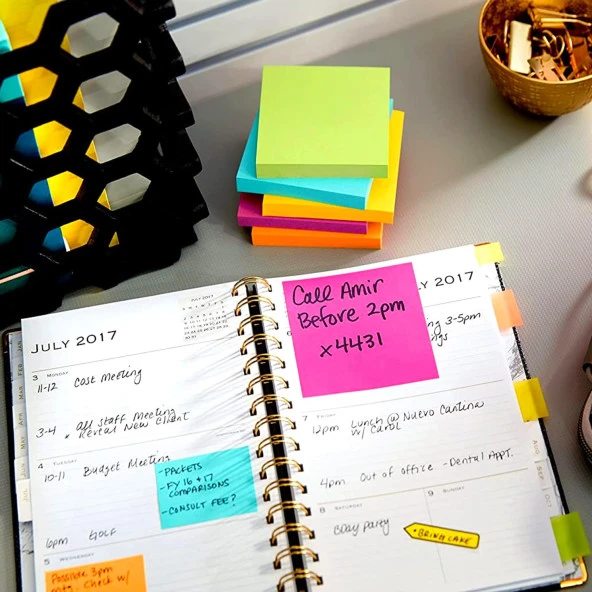 JULY 2017
JULY 2017
3 MONDAY
11-12 Cost Meeting
3-4 All Staff Meeting
* Reveal New Client
4 TUESDAY
10-11 Budget Meeting
-PACKETS
-FY 16 + 17
COMPARISONS
-CONSULT FEE?
6pm GOLF
5 WEDNESDAY
Possible 3pm
mtg. Check w/
Call Amir
Before 2pm
x4431
LY 2017
3-5pm
7 FRIDAY
12pm Lunch @ Nuevo Cantina
w/ Carol
4pm Out of office - Dental Appt.
8 SATURDAY
BDay party
9 SUNDAY
*BRING CAKE